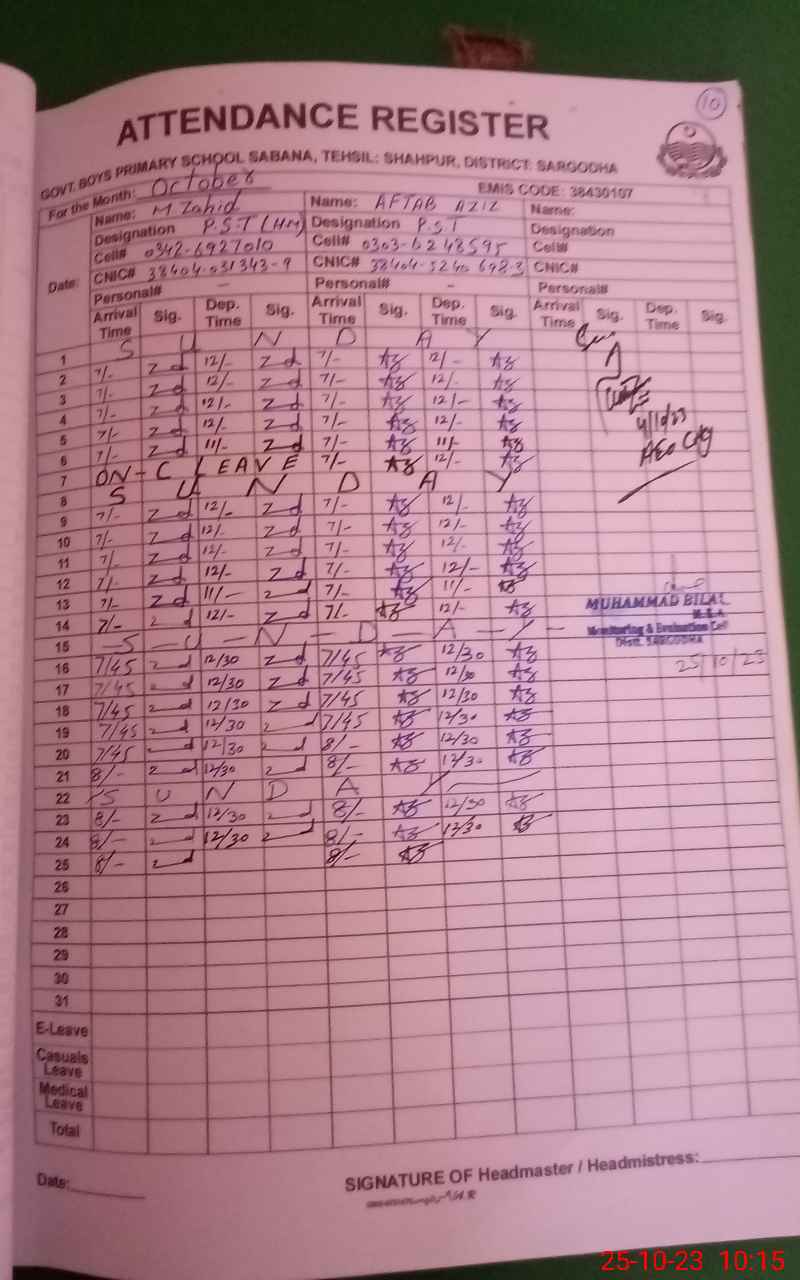 10
ATTENDANCE REGISTER
GOVT. BOYS PRIMARY SCHOOL SABANA, TEHSIL: SHAHPUR, DISTRICT: SARGODHA
For the Month: October EMIS CODE: 38430107
Name: M Zahid Name: AFTAB AZIZ Name:
Designation P.S.T (HM) Designation P.S.T Designation
Cell# 0342-6927010 Cell# 0303-6248595 Cell#
Date: CNIC# 38404-031343-9 CNIC# 38404-5240 698-3 CNIC#
Personal# - Personal# - Personal#
Arrival Time Sig. Dep. Time Sig. Arrival Time Sig. Dep. Time Sig. Arrival Time Sig. Dep. Time Sig.
1 S U N D A Y
2 7/- Zd 12/- Zd 7/- Az 12/- Az
3 7/- Zd 12/- Zd 7/- Az 12/- Az
4 7/- Zd 12/- Zd 7/- Az 12/- Az 4/10/23
5 7/- Zd 12/- Zd 7/- Az 12/- Az AEO
6 7/- Zd 11/- Zd 7/- Az 11/- Az
7 ON-C LEAVE 7/- Az 12/- Az
8 S U N D A Y
9 7/- Zd 12/- Zd 7/- Az 12/- Az
10 7/- Zd 12/- Zd 7/- Az 12/- Az
11 7/- Zd 12/- Zd 7/- Az 12/- Az
12 7/- Zd 12/- Zd 7/- Az 12/- Az
13 7/- Zd 11/- Zd 7/- Az 11/- Az MUHAMMAD BILAL
14 7/- Zd 12/- Zd 7/- Az 12/- Az M.E.A
15 -S-U-N-D-A-Y- Monitoring & Evaluation Cell
Distt. SARGODHA
16 7/45 Zd 12/30 Zd 7/45 Az 12/30 Az 25/10/23
17 7/45 Zd 12/30 Zd 7/45 Az 12/30 Az
18 7/45 Zd 12/30 Zd 7/45 Az 12/30 Az
19 7/45 Zd 12/30 Zd 7/45 Az 12/30 Az
20 7/45 Zd 12/30 Zd 8/- Az 12/30 Az
21 8/- Zd 12/30 Zd 8/- Az 12/30 Az
22 S U N D A Y
23 8/- Zd 12/30 Zd 8/- Az 12/30 Az
24 8/- Zd 12/30 Zd 8/- Az 12/30 Az
25 8/- Zd 8/- Az
26
27
28
29
30
31
E-Leave
Casuals Leave
Medical Leave
Total
Date: SIGNATURE OF Headmaster / Headmistress:
25-10-23 10:15